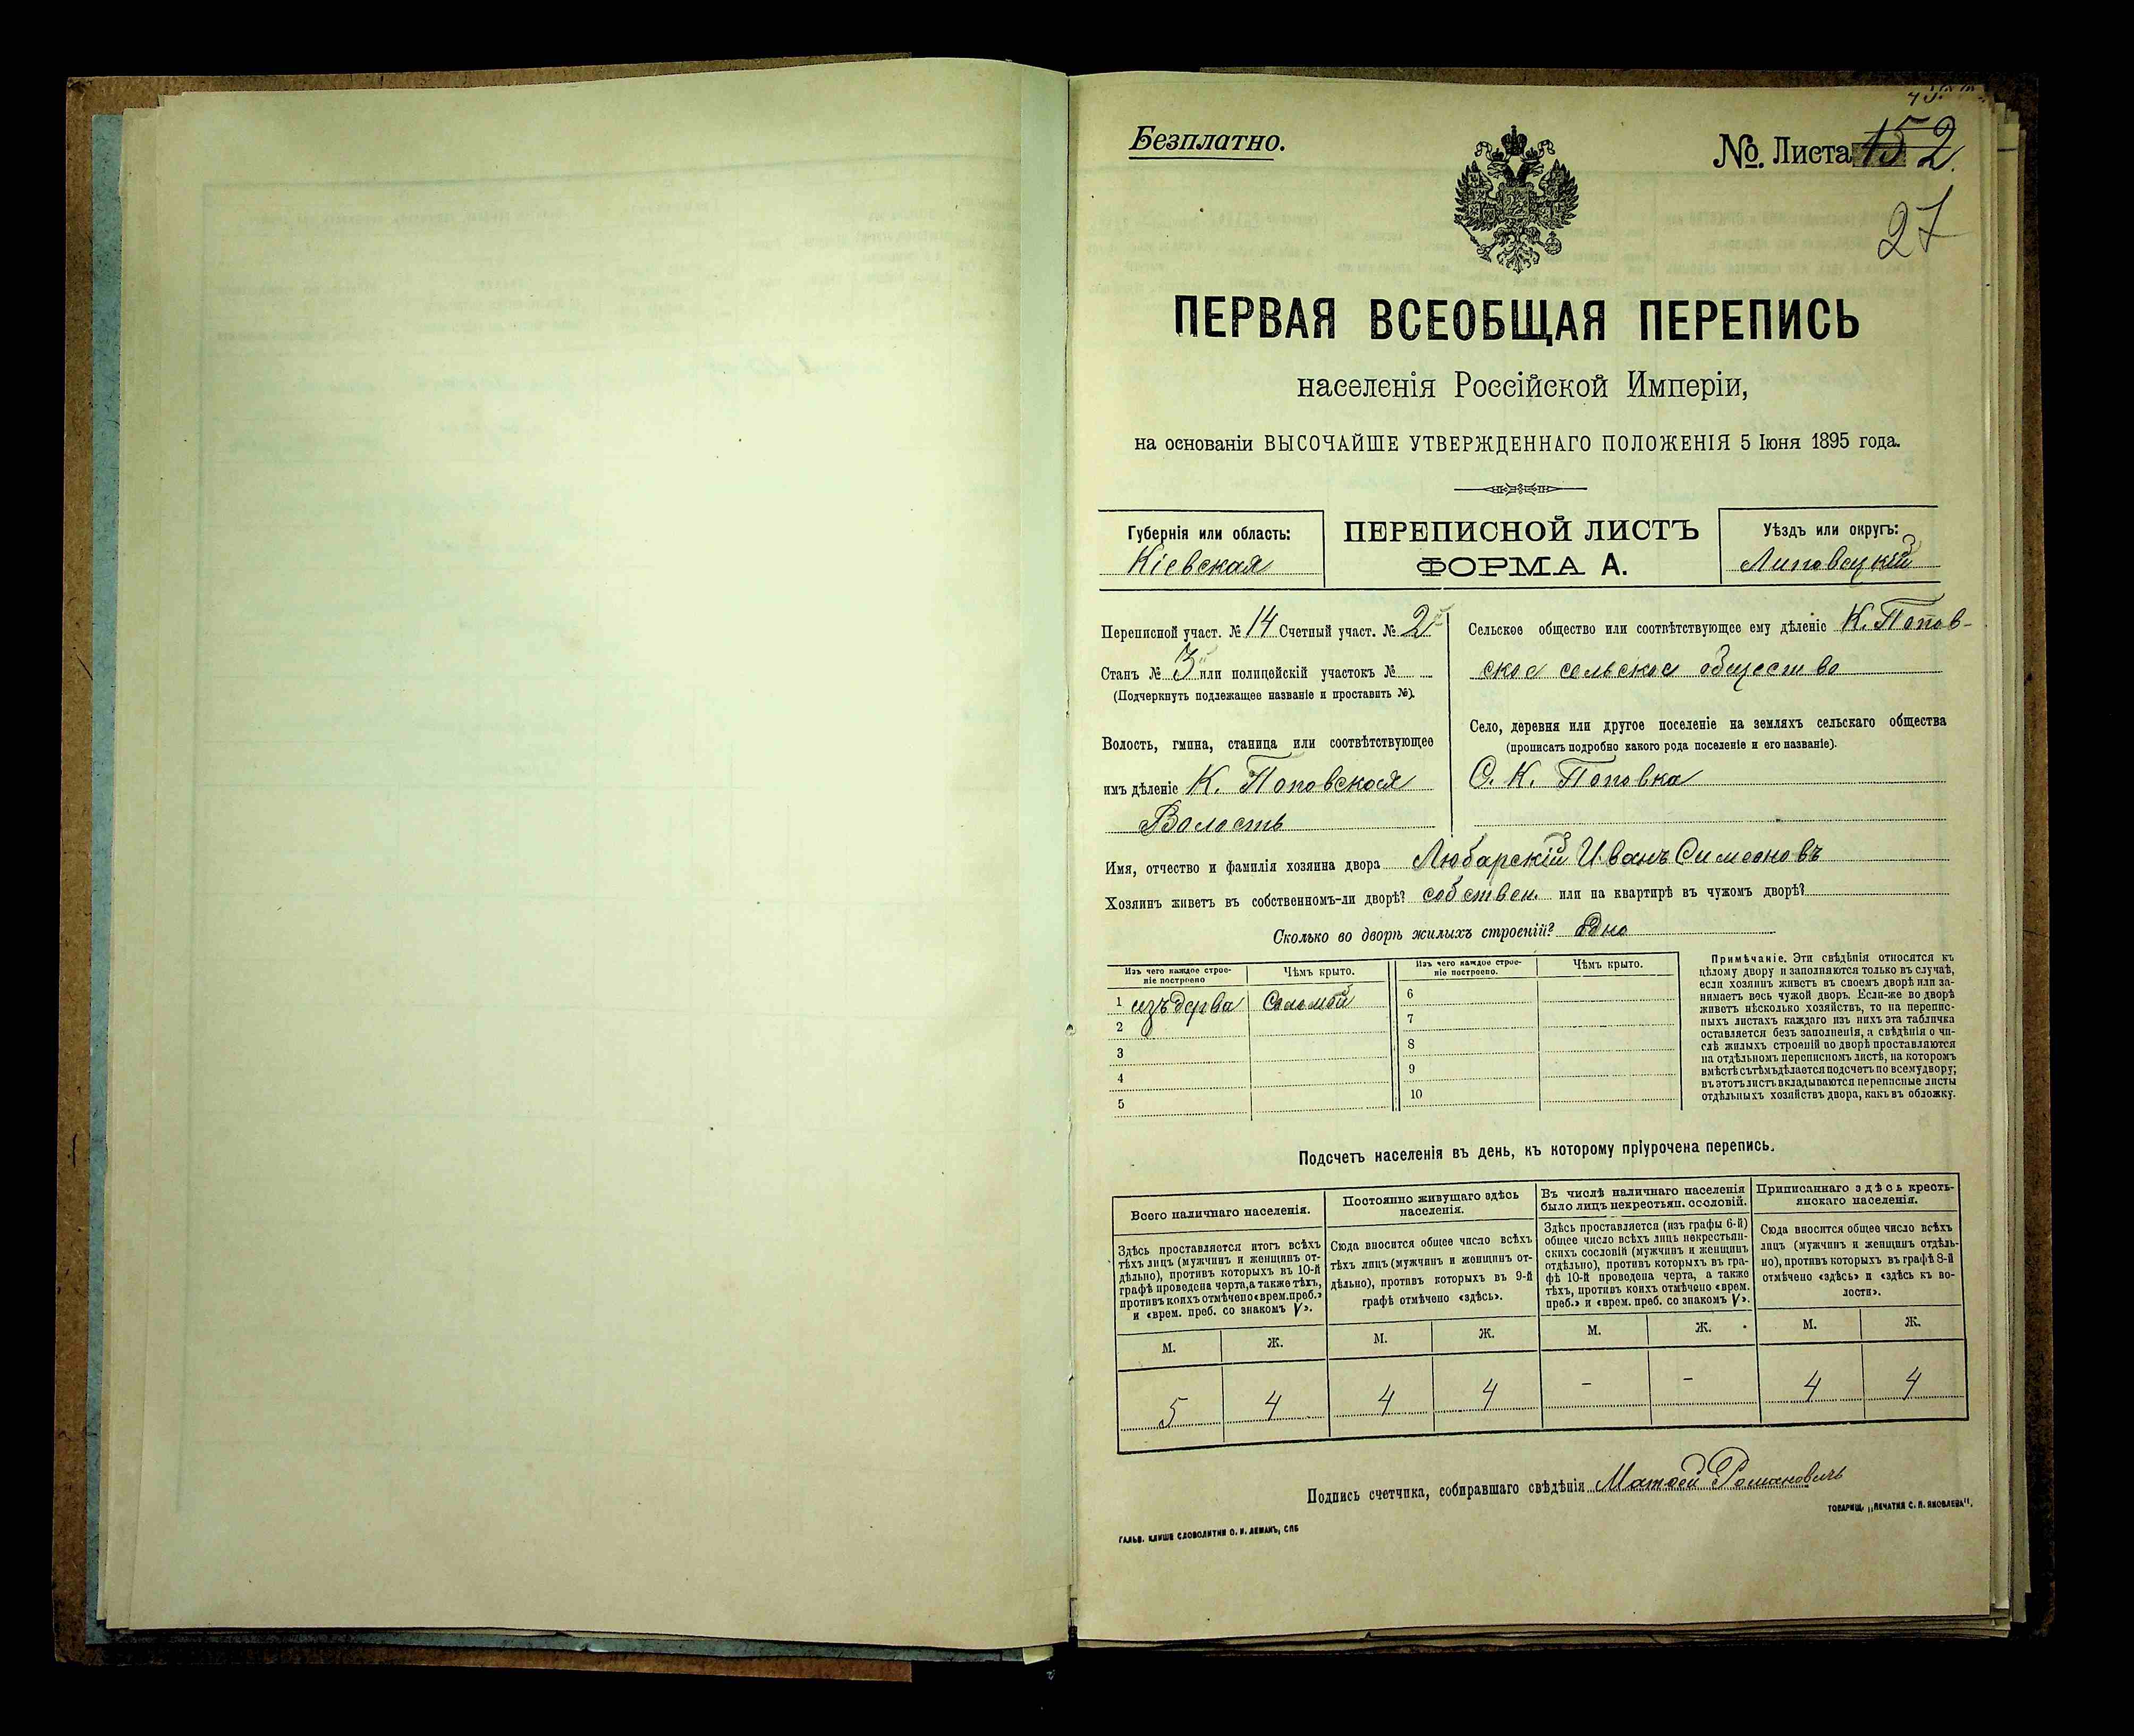 Безплатно.
№ Листа 152.
27
ПЕРВАЯ ВСЕОБЩАЯ ПЕРЕПИСЬ
населенія Россійской Имперіи,
на основаніи ВЫСОЧАЙШЕ УТВЕРЖДЕННАГО ПОЛОЖЕНІЯ 5 Іюня 1895 года.
Губернія или область:
Кіевская
ПЕРЕПИСНОЙ ЛИСТЪ
ФОРМА А.
Уѣздъ или округъ:
Липовецкій
Переписной участ. № 14 Счетный участ. № 2
Станъ № 3й или полицейскій участокъ №
(Подчеркнуть подлежащее названіе и проставить №).
Волость, гмина, станица или соотвѣтствующее
имъ дѣленіе К. Поповская
Волость
Сельское общество или соотвѣтствующее ему дѣленіе К. Попов-
ское сельское общество
Село, деревня или другое поселеніе на земляхъ сельскаго общества
(прописать подробно какого рода поселеніе и его названіе).
С. К. Поповка
Имя, отчество и фамилія хозяина двора Любарскій Иванъ Симеоновъ
Хозяинъ живетъ въ собственномъ-ли дворѣ? собствен. или на квартирѣ въ чужомъ дворѣ?
Сколько во дворѣ жилыхъ строеній? Одно
Изъ чего каждое строе-
ніе построено
Чѣмъ крыто.
Изъ чего каждое строе-
ніе построено.
Чѣмъ крыто.
1 изъ дерва Соломой
2
3
4
5
6
7
8
9
10
Примѣчаніе. Эти свѣдѣнія относятся къ
цѣлому двору и заполняются только въ случаѣ,
если хозяинъ живетъ въ своемъ дворѣ или за-
нимаетъ весь чужой дворъ. Если-же во дворѣ
живетъ нѣсколько хозяйствъ, то на перепис-
ныхъ листахъ каждаго изъ нихъ эта табличка
оставляется безъ заполненія, а свѣдѣнія о чи-
слѣ жилыхъ строеній во дворѣ проставляются
на отдѣльномъ переписномъ листѣ, на которомъ
вмѣстѣ съ тѣмъ дѣлается подсчетъ по всему двору;
въ этотъ листъ вкладываются переписные листы
отдѣльныхъ хозяйствъ двора, какъ въ обложку.
Подсчетъ населенія въ день, къ которому пріурочена перепись.
Всего наличнаго населенія.
Здѣсь проставляется итогъ всѣхъ
тѣхъ лицъ (мужчинъ и женщинъ от-
дѣльно), противъ которыхъ въ 10-й
графѣ проведена черта, а также тѣхъ,
противъ коихъ отмѣчено «врем. преб.»
и «врем. преб. со знакомъ V».
М. Ж.
5 4
Постоянно живущаго здѣсь
населенія.
Сюда вносится общее число всѣхъ
тѣхъ лицъ (мужчинъ и женщинъ от-
дѣльно), противъ которыхъ въ 9-й
графѣ отмѣчено «здѣсь».
М. Ж.
4 4
Въ числѣ наличнаго населенія
было лицъ некрестьян. сословій.
Здѣсь проставляется (изъ графы 6-й)
общее число всѣхъ лицъ некрестьян-
скихъ сословій (мужчинъ и женщинъ
отдѣльно), противъ которыхъ въ гра-
фѣ 10-й проведена черта, а также
тѣхъ, противъ коихъ отмѣчено «врем.
преб.» и «врем. преб. со знакомъ V».
М. Ж.
- -
Приписаннаго здѣсь кресть-
янскаго населенія.
Сюда вносится общее число всѣхъ
лицъ (мужчинъ и женщинъ отдѣль-
но), противъ которыхъ въ графѣ 8-й
отмѣчено «здѣсь» и «здѣсь къ во-
лости».
М. Ж.
4 4
Подпись счетчика, собиравшаго свѣдѣнія Матѳей Романовичъ
ГАЛЬВ. КЛИШЕ СЛОВОЛИТНИ О. И. ЛЕМАНЪ, СПБ
ТОВАРИЩ. „ПЕЧАТНЯ С. П. ЯКОВЛЕВА".